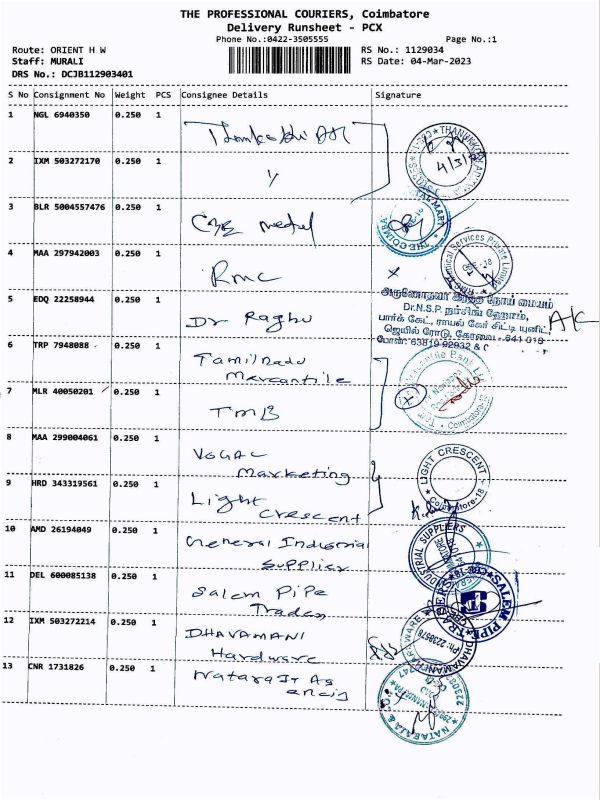 THE PROFESSIONAL COURIERS, Coimbatore
Delivery Runsheet - PCX
Phone No.:0422-3505555
Page No.:1
Route: ORIENT H W
RS No.: 1129034
Staff: MURALI
RS Date: 04-Mar-2023
DRS No.: DCJB112903401
S No Consignment No Weight PCS Consignee Details Signature
1 NGL 6940350 0.250 1
2 IXM 503272170 0.250 1
4/3/
3 BLR 5004557476 0.250 1
THE COIMBA
4 MAA 297942003 0.250 1 Rmc
Services Private Limited
5 EDQ 22258944 0.250 1 Dr Raghu
அருணோதயா இரத்த நோய் மையம்
Dr.N.S.P. நர்சிங் ஹோம்,
பார்க் கேட், ராயல் கேர் சிட்டி யுனிட்,
ஜெயில் ரோடு, கோவை - 641 018
6 TRP 7948088 0.250 1 Tamilnadu
Mercantile
7 MLR 40050201 0.250 1 TMB
Coimbatore
8 MAA 299004061 0.250 1
Marketing
9 HRD 343319561 0.250 1 Light
Crescent
LIGHT CRESCENT
Coimbatore-18
10 AMD 26194049 0.250 1 General Industrial
Supplier
INDUSTRIAL SUPPLIERS
11 DEL 600085138 0.250 1 Salem Pipe
SALEM PIPE TRADERS
12 IXM 503272214 0.250 1 DHAVAMANI
Hardware
DHAVAMANI HARDWARE
Ph: 2238578
13 CNR 1731826 0.250 1
NATARAJA &